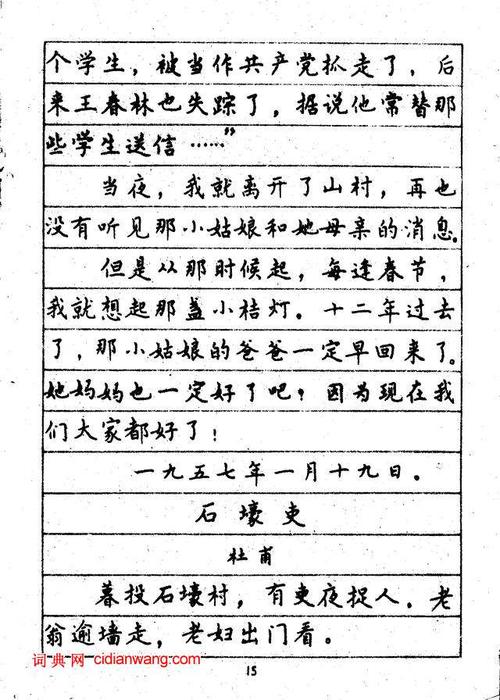 个学生，被当作共产党抓走了，后
来王春林也失踪了，据说他常替那
些学生送信……”
当夜，我就离开了山村，再也
没有听见那小姑娘和她母亲的消息。
但是从那时候起，每逢春节，
我就想起那盏小桔灯。十二年过去
了，那小姑娘的爸爸一定早回来了。
她妈妈也一定好了吧？因为现在我
们大家都好了！
一九五七年一月十九日。
石壕吏
杜甫
暮投石壕村，有吏夜捉人。老
翁逾墙走，老妇出门看。
词典网 cidianwang.com
15